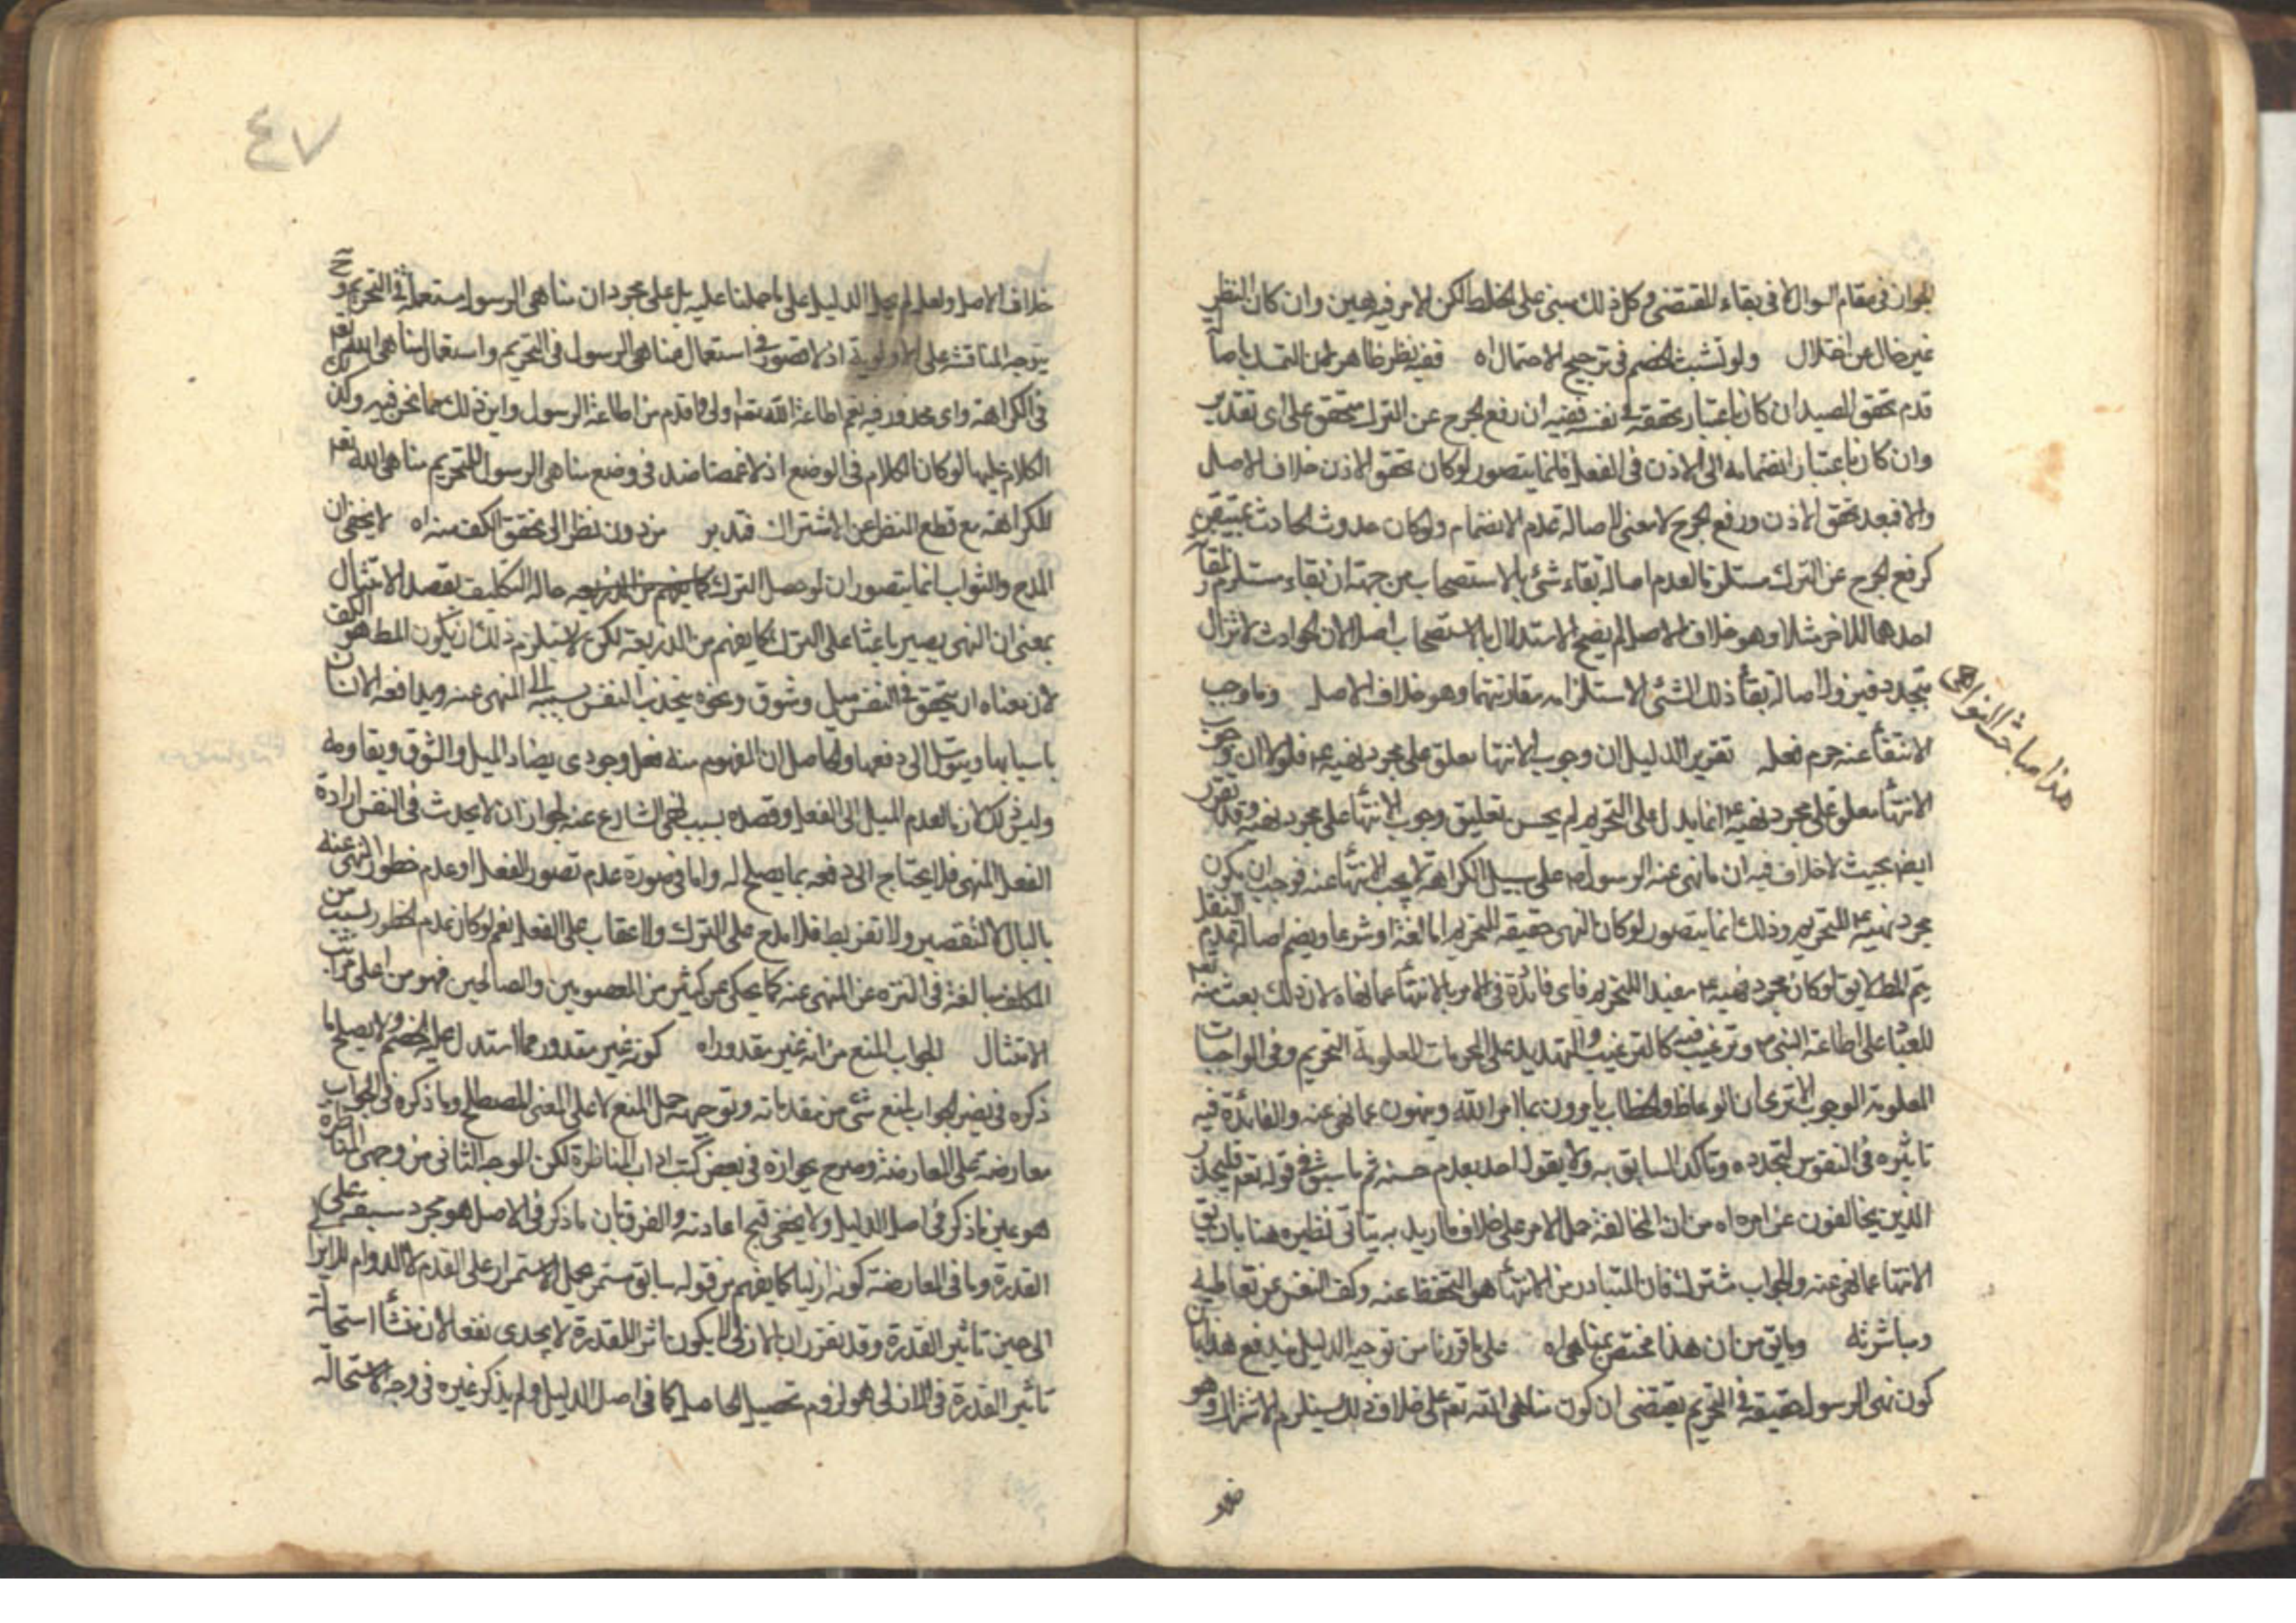 الجواز في مقام السوال لا في بقاء المقتضى وكل ذلك مبنى على الخلط لكن الامر فيه هين وان كان النظر
غير خال عن اختلال ولو تشبث الخصم في ترجيح الاحتمال اه ففيه نظر ظاهر لان التمسك باصالة
عدم تحقق الصيد ان كان باعتبار تحققه في نفسه ففيه ان رفع الحرج عن الترك متحقق على اى تقدير
وان كان باعتبار انضمامه الى الاذن في الفعل فانما يتصور لو كان تحقق الاذن خلاف الاصل
والا فبعد تحقق الاذن ورفع الحرج لا معنى لاصالة عدم الانضمام ولو كان حدوث الحادث
كرفع الحرج عن الترك مستلزما لعدم اصالة بقاء شئ بالاستصحاب من جهة ان بقاء مستلزم
احدهما للاخر مثلا وهو خلاف الاصل لم يصح الاستدلال بالاستصحاب اصلا لان الحوادث لا تزال
يتجدد فيزول اصالة بقاء ذلك الشئ لاستلزامه مقارنتهما وهو خلاف الاصل وما وجب
هذا مباحث النواهى
الانتهاء عنه حرم فعله تقرير الدليل ان وجوب الانتهاء معلق على مجرد نهيه ع م فلولا ان وجوب
الانتهاء معلق على مجرد نهيه ع م انما يدل على التحريم لم يحسن تعليق وجوب الانتهاء على مجرد نهيه وقد تقرر
ايض بحيث لا خلاف فيه ان ما نهى عنه الرسول ص على سبيل الكراهة لا يجب الانتهاء عنه فوجب ان يكون
مجرد نهيه ع م للتحريم وذلك انما يتصور لو كان النهى حقيقه للتحريم اما لغة او شرعا ويضم اصالة عدم النقل
يتم المط لا يق لو كان مجرد نهيه ع م مفيد اللتحريم فاى فائدة في الامر بالانتهاء عما نهاه لان ذلك بعث منه تعالى
للعباد على اطاعة النبى ص وترغيب فيه كالترغيب والتهديد على المحرمات المعلومة التحريم وفى الواجبات
المعلومة الوجوب الا ترى ان الوعاظ والخطاب يامرون بما امر الله وينهون عما نهى عنه والفائدة فيه
تاثيره في النفوس لتجدده وتاكد السابق به ولا يقول احد بعدم حسنه ثم ما سبق في قوله تعم فليحذر
الذين يخالفون عن امره اه من ان المخالفة حمل الامر على خلاف ما اريد به يتاتى نظيره هنا بان يق
الانتهاء عما نهى عنه والجواب مشترك فان المتبادر من الانتهاء هو التحفظ عنه وكف النفس عن تعاطيه
ومباشرته وما يق من ان هذا مختص بمناهى اه على ما قررنا من توجيه الدليل يندفع هذا بان
كون نهى الرسول حقيقة في التحريم يقتضى ان كون مناهى الله تعم على خلاف ذلك يستلزم الاشتراك وهو
خلاف
٤٧
خلاف الاصل ولعله لم يحمل الدليل على ما حملنا عليه بل على مجرد ان مناهى الرسول مستعملة في التحريم وح
يتوجه المناقشة على الاولوية اذ لا قصور في استعمال مناهى الرسول في التحريم واستعمال مناهى الله تعم
في الكراهة واى محذور فيه نعم اطاعة الله تعم اولى واقدم من اطاعة الرسول واين ذلك مما نحن فيه وكذلك
الكلام عليها لو كان الكلام في الوضع اذ لا غضاضة في وضع مناهى الرسول للتحريم مناهى الله تعم
للكراهة مع قطع النظر عن الاشتراك فتدبر من دون نظر الى تحقق الكف منه اه لا يخفى ان
المدح والثواب انما يتصور ان لو حصل الترك حالة التكليف بقصد الامتثال
بمعنى ان النهى يصير باعثا على الترك كما يفهم من الذريعة لكن لا يستلزم ذلك ان يكون المط هو الكف
لان معناه ان يتحقق في النفس ميل وشوق ونحوه ينجذب النفس بسببه الى المنهى عنه ويدافعه الانسان
باسبابها ويتوسل الى دفعها والحاصل ان المفهوم منه فعل وجودى يضاد الميل والشوق ويقاومه
وليس ذلك لازما لعدم الميل الى الفعل وقصده بسبب نهى الشارع عنه لجواز ان لا يحدث في النفس ارادة
الفعل المنهى فلا يحتاج الى دفعه بما يصلح له واما في صورة عدم تصور الفعل او عدم خطور المنهى عنه
بالبال لا لتقصير ولا تفريط فلا مدح على الترك ولا عقاب على الفعل نعم لو كان عدم الخطور بسبب من
المكلف مبالغة في التنزه عن المنهى عنه كما يحكى عن كثير من المعصومين والصالحين فهو من اعلى مراتب
الامتثال الجواب المنع من انه غير مقدور اه كونه غير مقدور مما استدل عليه الخصم ولا يصلح ما
ذكره في تضير الجواب لمنع شئ من مقدماته وتوجيهه حمل المنع لا على المعنى المصطلح وما ذكره في الجواب
معارضه على المعارضة وصرح بجوازه في بعض كتب اداب المناظرة لكن الوجه الثانى من وجهى المناظرة
هو عين ما ذكر في اصل الدليل ولا يخفى قبح اعادته والفرق بان ما ذكر في الاصل هو مجرد سبقه على
القدرة وما في المعارضة كونه ازليا كما يفهم من قوله سابق مستمر بحمل الاستمرار على القدم لا الدوام
الى حين تاثير القدرة وقد تقرر ان الازلى لا يكون اثر اللقدرة لا يجدى نفعا لان منشأ استحالة
تأثير القدرة في الازلى هو لزوم تحصيل الحاصل كما في اصل الدليل ولم يذكر غيره في وجه الاستحالة